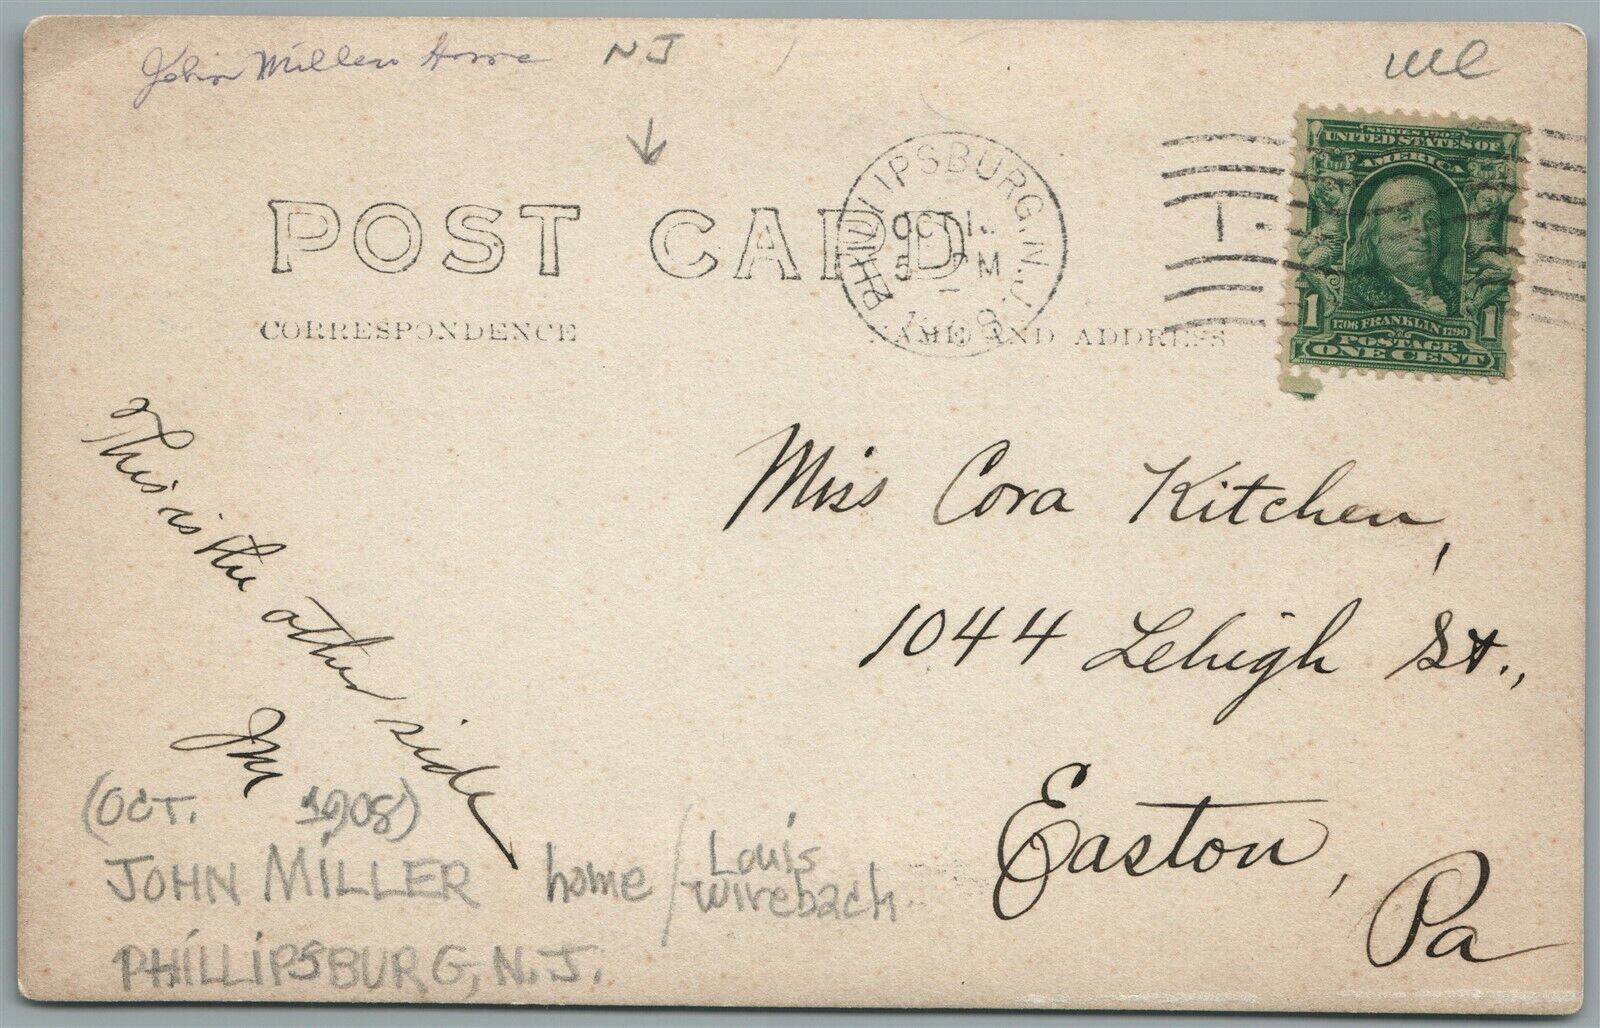 John Miller Home NJ
POST CARD
CORRESPONDENCE
NAME AND ADDRESS
PHILLIPSBURG, N.J.
OCT
5 PM
1908
SERIES 1902
UNITED STATES OF
AMERICA
1 1
1706 FRANKLIN 1790
POSTAGE
ONE CENT
This is the other side
JM
Miss Cora Kitchen,
1044 Lehigh St.,
Easton,
Pa
(OCT. 1908)
JOHN MILLER home / Louis
Wirebach
PHILLIPSBURG, N.J.